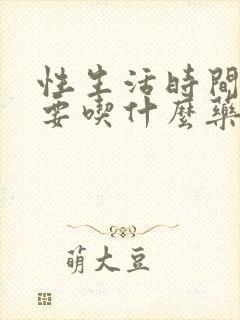 性生活時間
要喫什麼藥
萌大豆